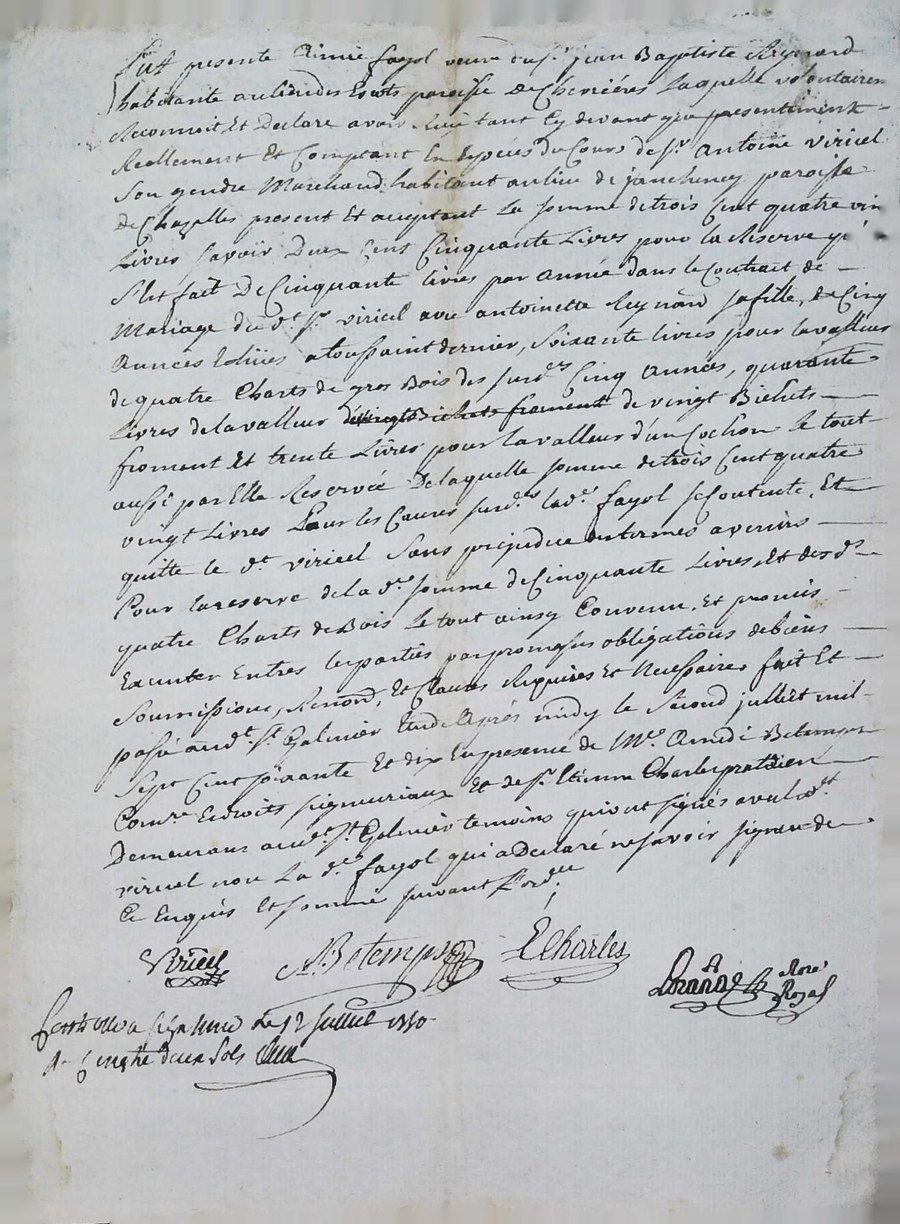 Fut presente Aimée fayol veuve du Sr. jean Baptiste Reynard
habitante au lieu des Escots paroisse de Chevriéres Laquelle volontairem
Reconnoit Et Declare avoir Receu tant Cy devant que presentement
Reellement Et Comptant En Especes du Cours de Sr. antoine viricel
Son gendre Marchand habitant au lieu de janchenay paroisse
de Chazelles present Et aceptant La somme de trois Cent quatre vin
Livres savoir Deux Cent Cinquante Livres pour la Reserve q'
S'est fait De Cinquante livres par année dans le Contrat de
Mariage du dt. Sr. viricel avec antoinette Reynard sa fille, de Cinq
Années Echües a toussaint dernier, Soixante livres pour la valleur
de quatre Charts de gros Bois des surd.es Cinq années, quarante
Livres de la valleur de vingt Bichets froment de vingt Bichets
froment Et trente Livres pour la valleur d'un Cochon le tout
aussi par Elle Reservée De laquelle somme de trois Cent quatre
vingt Livres Pour les Causes surd.es lad.e fayol se Contente, Et
quitte le dt. viricel Sans prejudice des termes avenirs
Pour la reserve de la d.e somme de Cinquante Livres, Et des ds.
quatre Charts de Bois Le tout ainsy Convenu, Et promis
Executer Entres les parties par promesses obligations de biens
Soumissions, Renond, Et Clauses Requises Et Necessaires fait Et
passé aud.t St. Galmier Etude Après midy le Second juilliet mil
Sept Cent soixante Et dix En presence de Mre. Amedé Betemps
Comre. En droits seigneuriaux Et de Sr. Etienne Charles praticien
Demeurans aud.t St. Galmier temoins qui ont signés avec led.t
viricel non La d.e fayol qui a Declaré ne savoir signer de
Ce Enquis Et sommé suivant L'ord.ce
Viricel A. Betemps E Charles
Not.re
Royal
a St. galmier Le 12 juillet 1770
Sols